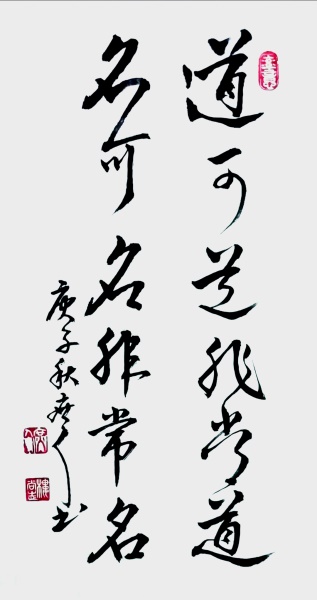 道可道非常道
名可名非常名
庚子秋
书